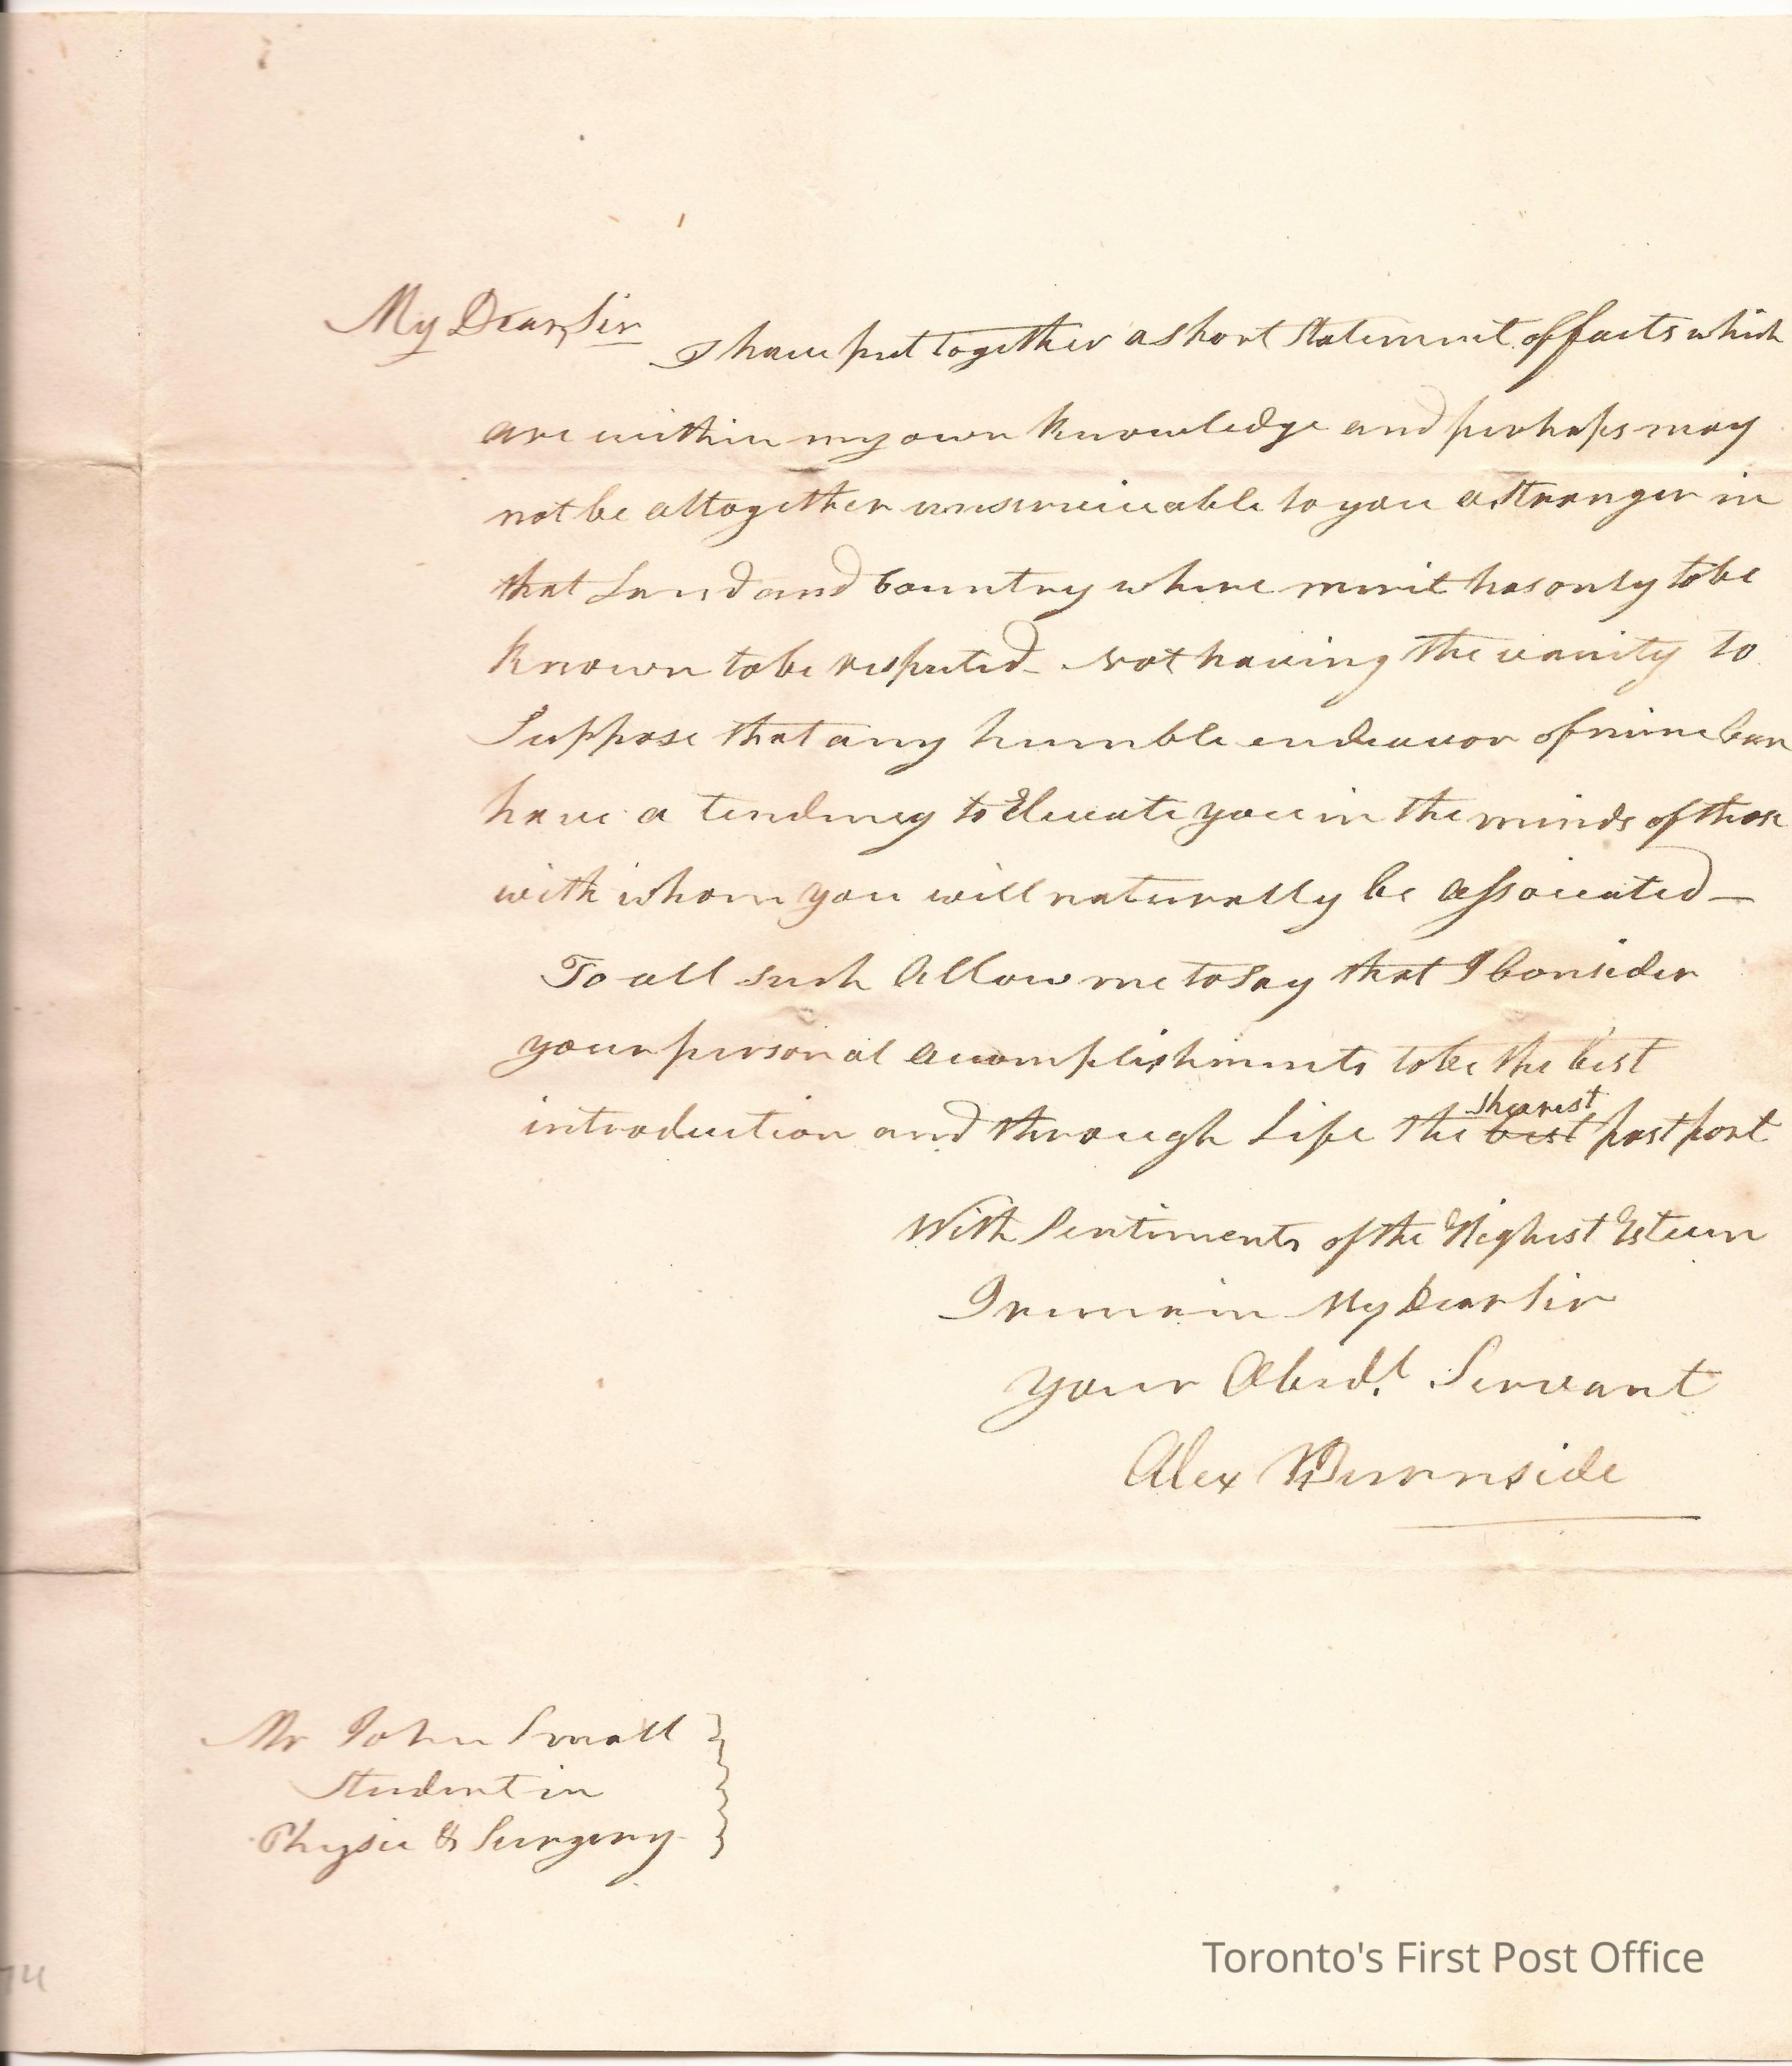 My Dear Sir
I have put together a short Statement of facts which
are within my own knowledge and perhaps may
not be altogether unserviceable to you a Stranger in
that Land and Country where merit has only to be
known to be respected - Not having the vanity to
Suppose that any humble endeavor of mine Can
have a tendency to Elevate you in the minds of those
with whom you will naturally be Associated —
To all such Allow me to Say that I Consider
your personal Accomplishments to be the best
introduction and through Life the best shearest pastport
With Sentiments of the Highest Esteem
I remain My Dear Sir
your Obedt. Servant
Alex Burnside
Mr John Small
Student in
Physic & Surgery
74
Toronto's First Post Office